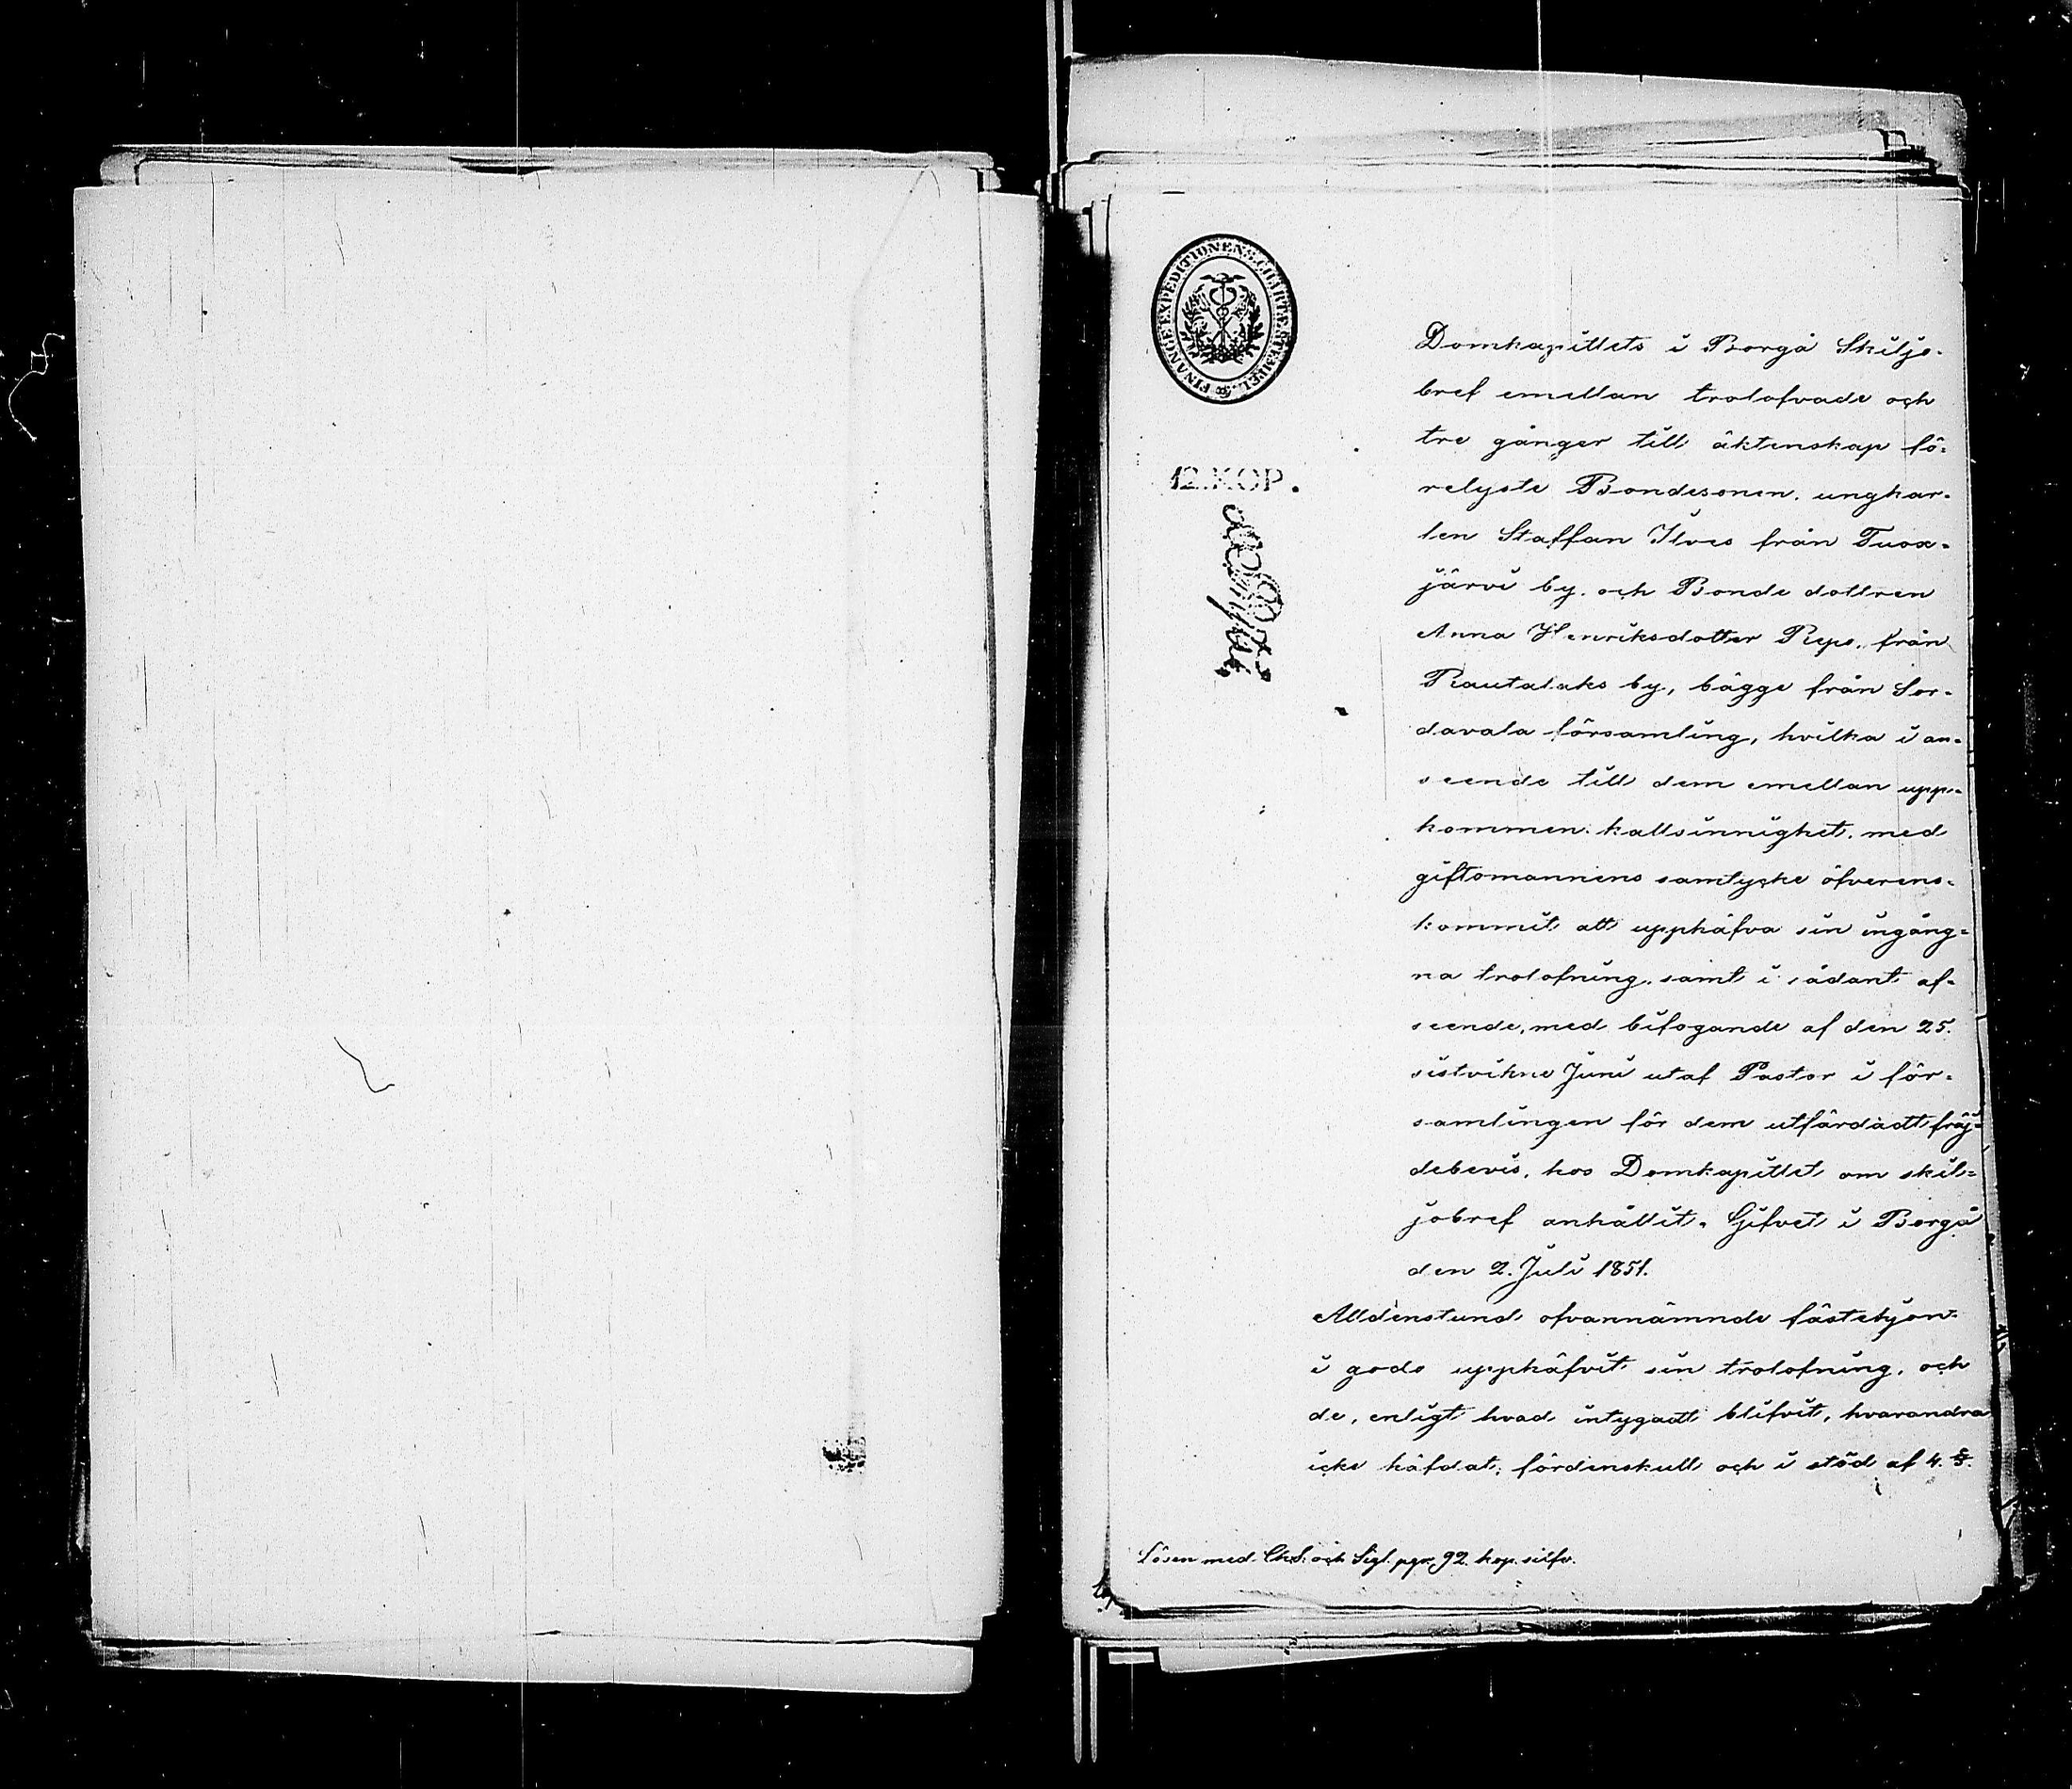 FINANCE EXPEDITIONENS CHARTÆ STEMPEL.
12.KOP.
Domkapitlets i Borgå Skiljo-
bref emellan trolofvade och
tre gånger till äktenskap fö-
relyste Bondesonen, ungkar-
len Staffan Ilves från Tuox-
järvi by. och Bonde dottren
Anna Henriksdotter Reps. från
Rautalaks by, bägge från Sor-
davala församling, hvilka i an-
seende till dem emellan upp-
kommen kallsinnighet. med
giftomannens samtycke öfverens-
kommit att upphäfva sin ingång-
na trolofning. samt i sådant af-
seende, med bifogande af den 25.
sistvikne Juni utaf Pastor i för-
samlingen för dem utfärdadt fräj-
debevis, hos Domkapitlet om skil-
jobref anhållit. Gifvet i Borgå
den 2. Juli 1851.
Alldenstund ofvannämnde fästehjon
i godo upphäfvit sin trolofning, och
de, enligt hvad intygadt blifvit, hvarandra
icke häfdat; fördenskull och i stöd af 4. §.
Lösen med Ch.S. och Sigl. pgr. 92. kop. silfv.